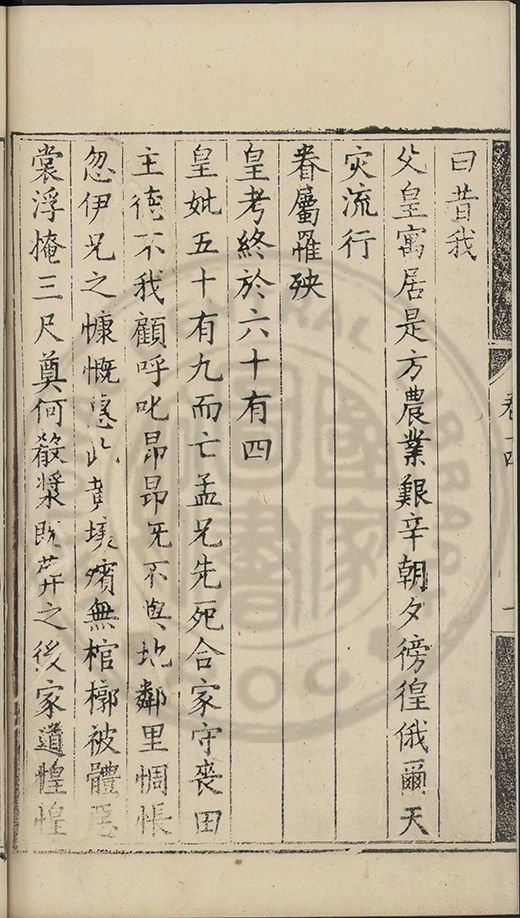 卷十四
一
曰昔我
父皇寓居是方農業艱辛朝夕徬徨俄爾天
灾流行
眷屬罹殃
皇考終於六十有四
皇妣五十有九而亡孟兄先死合家守喪田
主徳不我顧呼叱昂昂旣不與地鄰里惆悵
忽伊兄之慷慨惠此黄壤殯無棺槨被體惡
裳浮掩三尺奠何殽漿旣葬之後家道惶惶